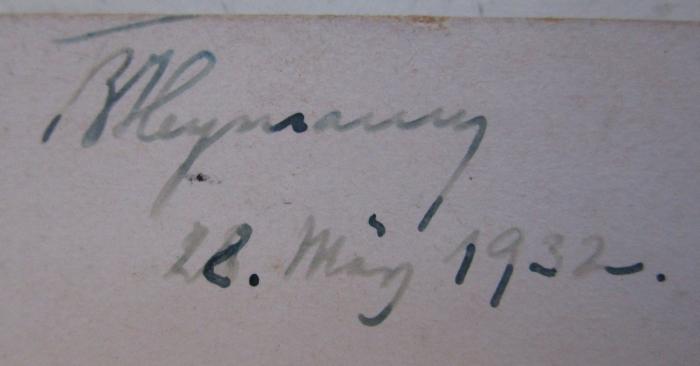 B Heymann
28. März 1932.